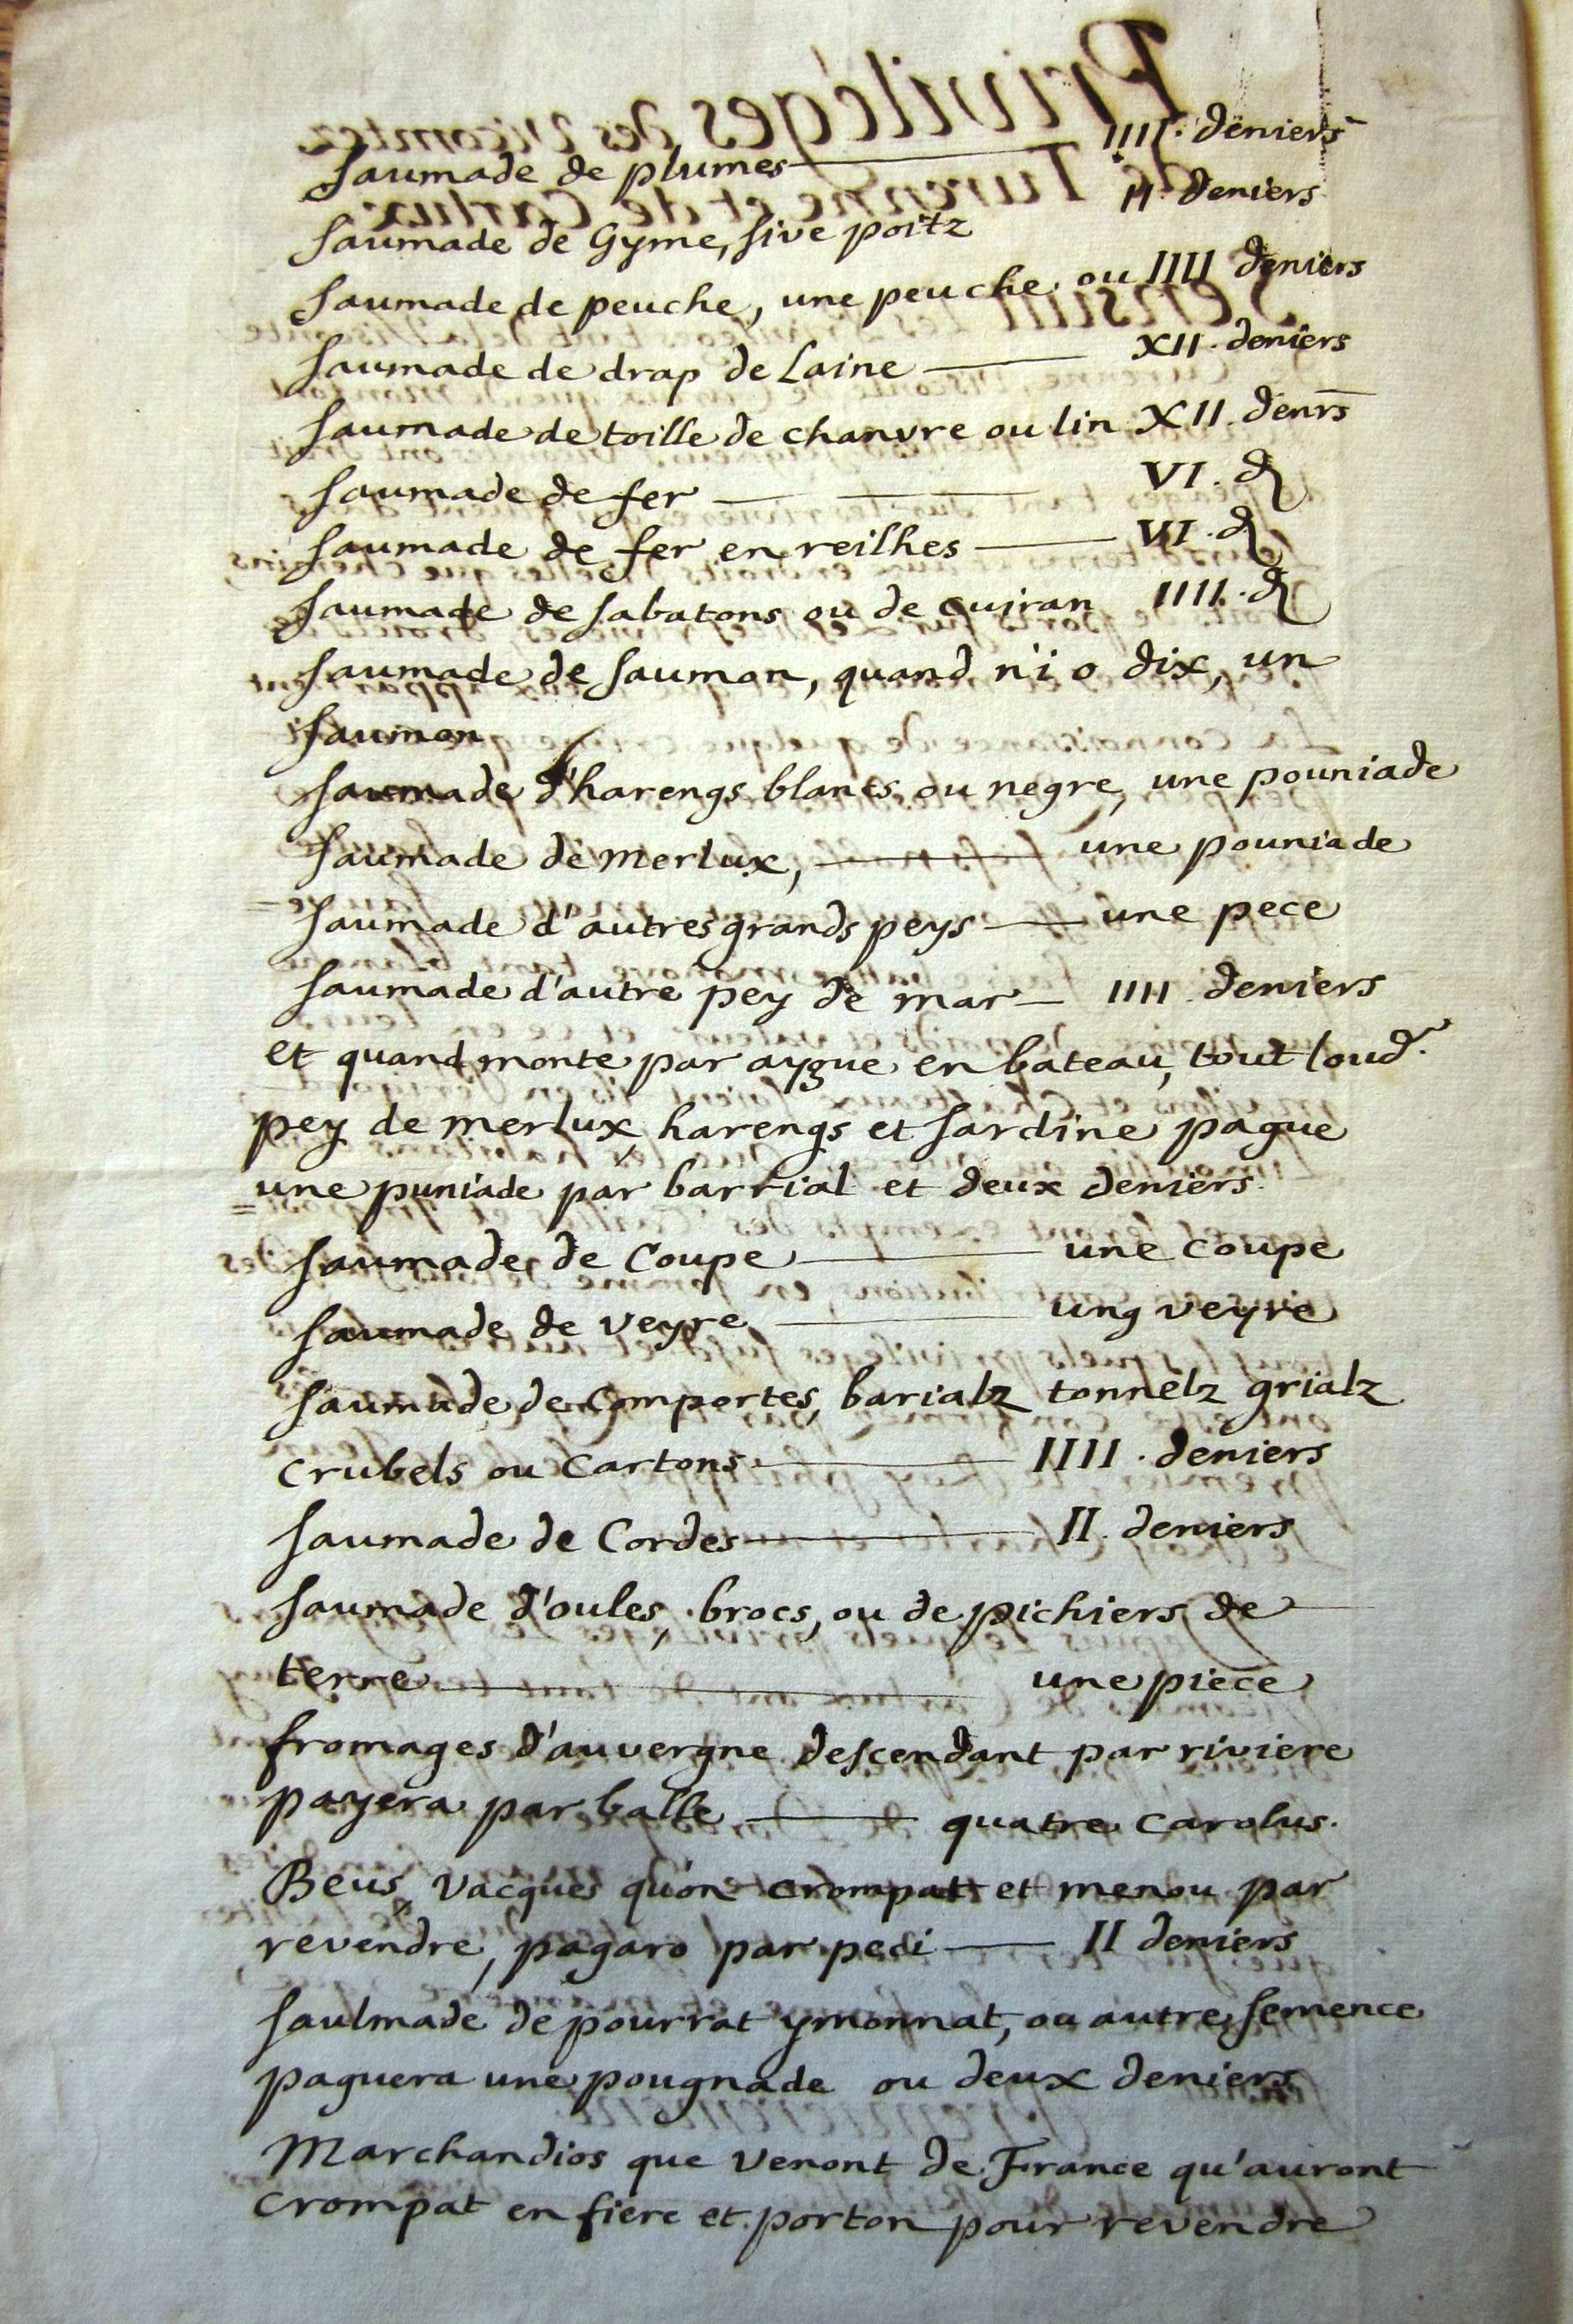 Saumade de plumes IIII. deniers
Saumade de Gyme, sive poitz II. deniers
Saumade de peuche, une peuche ou IIII deniers
Saumade de drap de Laine XII. deniers
Saumade de toille de chanvre ou lin XII. denrs
Saumade de fer VI. d
Saumade de fer en reilhes VI. d
Saumade de sabatons ou de cuiran IIII. d
Saumade de saumon, quand n'i o dix, un
saumon
Saumade d'harengs blancs ou negre, une pouniade
Saumade de merlux, une pouniade
Saumade d'autres grands peys une pece
Saumade d'autre pey de mar IIII deniers
et quand monte par aygue en bateau, tout loud.
pey de merlux, harengs et sardine pague
une puniade par barrial et deux deniers.
Saumade de Coupe une coupe
Saumade de veyre ung veyre
Saumade de Comportes, barialz tonnelz grialz
crubels ou Cartons IIII. deniers
Saumade de Cordes II. deniers
Saumade d'oules, brocs, ou de pichiers de
terre une piece
fromages d'auvergne descendant par riviere
payera par balle quatre Carolus.
Beus, Vacques qu'on crompat et menou par
revendre, pagaro par pedi II deniers
Saulmade de pourrat ymonnat, ou autre semence
paguera une pougnade ou deux deniers
Marchandios que venont de France qu'auront
Crompat en fiere et porton pour revendre